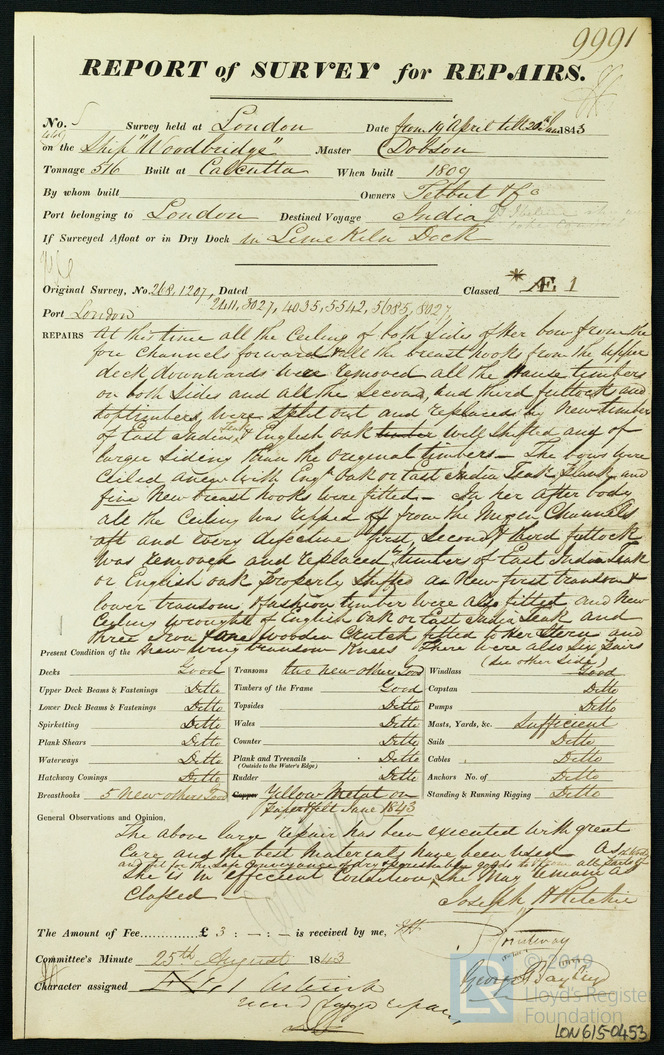 9991
REPORT of SURVEY for REPAIRS.
No. Survey held at London Date from 19 April till 1843
on the Ship "Woodbridge" Master Dobson
Tonnage 516 Built at Calcutta When built 1809
By whom built Owners Tebbut & Co
Port belonging to London Destined Voyage India
If Surveyed Afloat or in Dry Dock in Lime Kiln Dock
Original Survey, No. 268, 1207, Dated Classed * Æ 1
2411, 3027, 4035, 5542, 5685, 8027
Port London
REPAIRS At this time all the Ceiling of both Sides of her bow from the
fore Channels forward & all the breast hooks from the upper
deck downwards were removed all the Hause timbers
on both Sides and all the Second, and third futtocks and
toptimbers, were Split out and replaced by New timber
of East India Teak & English Oak timber well Shifted and of
larger Siding than the original timbers – The bows were
Ceiled anew with Engh Oak or East India Teak Plank and
five New breast hooks were fitted. – In her After body
all the Ceiling was ripped off from the Mizen Channels
aft and every defective first, Second & third futtock
was removed and replaced timbers of East India Teak
or English oak properly Shifted a New first transom &
lower transom & fashion timber were also fitted and New
Ceiling wrought of English Oak or East India Teak and
three Iron & one Wooden Crutch fitted to her Stern and
Present Condition of the new wing transom Knees There were also Six pairs
(See other Side)
Decks Good Transoms two new others Good Windlass Good
Upper Deck Beams & Fastenings Ditto Timbers of the Frame Good Capstan Ditto
Lower Deck Beams & Fastenings Ditto Topsides Ditto Pumps Ditto
Spirketting Ditto Wales Ditto Masts, Yards, &c. Sufficient
Plank Shears Ditto Counter Ditto Sails Ditto
Waterways Ditto Plank and Treenails Ditto Cables Ditto
(Outside to the Water's Edge)
Hatchway Comings Ditto Rudder Ditto Anchors No. of Ditto
Breasthooks 5 New others Good Copper Yellow Metal on Standing & Running Rigging Ditto
Paper & felt June 1843
General Observations and Opinion,
The above large repair has been executed with great
Care and the best Materials have been used As
and fit for the Safe Conveyance of dry & perishable goods to all parts of
She is in efficient Condition She May remain as
Classed
Joseph H Ritchie
The Amount of Fee £ 3 : – : – is received by me,
Committee's Minute 25th August 1843
George Bayley
Character assigned
© 2019
Lloyd's Register
Foundation
LR
LON615-0453